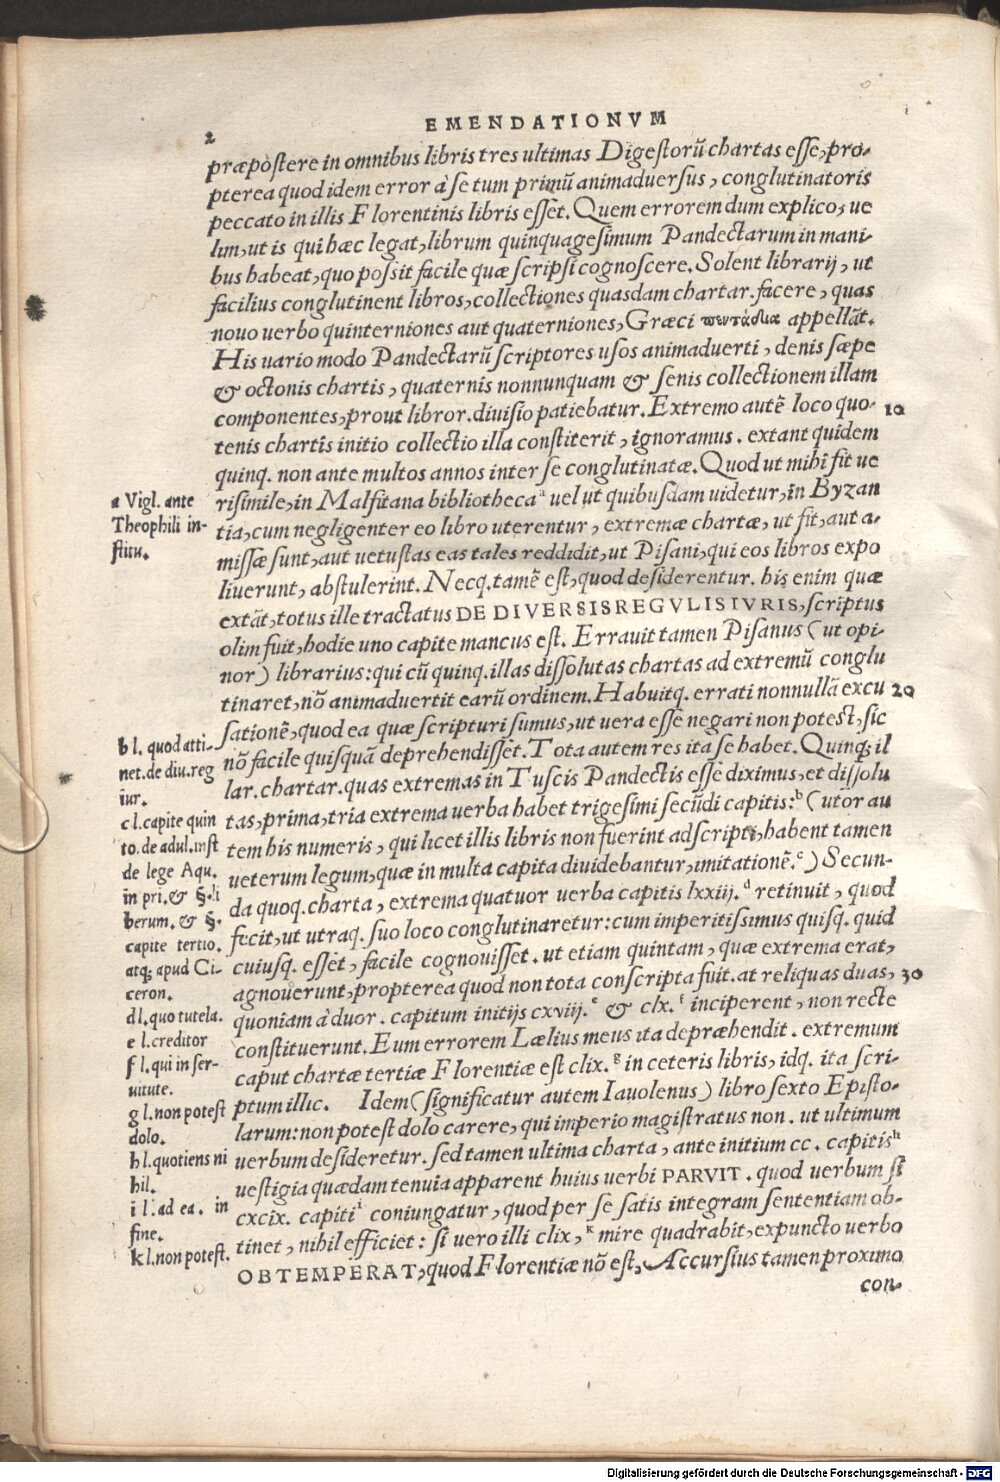 2
EMENDATIONVM
præpostere in omnibus libris tres ultimas Digestorũ chartas esse, pro-
pterea quod idem error à se tum primũ animaduersus, conglutinatoris
peccato in illis Florentinis libris esset. Quem errorem dum explico, ue
lim, ut is qui hæc legat, librum quinquagesimum Pandectarum in mani-
bus habeat, quo possit facile quæ scripsi cognoscere. Solent librarij, ut
facilius conglutinent libros, collectiones quasdam chartar. facere, quas
nouo uerbo quinterniones aut quaterniones, Græci πεντάδια appellãt.
His uario modo Pandectarũ scriptores usos animaduerti, denis sæpe
& octonis chartis, quaternis nonnunquam & senis collectionem illam
componentes, prout libror. diuisio patiebatur. Extremo autẽ loco quo- 10
tenis chartis initio collectio illa constiterit, ignoramus. extant quidem
quinq. non ante multos annos inter se conglutinatæ. Quod ut mihi fit ue
a Vigl. ante
Theophili in-
stitu.
risimile, in Malfitana bibliotheca ᵃ uel ut quibusdam uidetur, in Byzan
tia, cum negligenter eo libro uterentur, extremæ chartæ, ut fit, aut a-
missæ sunt, aut uetustas eas tales reddidit, ut Pisani, qui eos libros expo
liuerunt, abstulerint. Necq. tamẽ est, quod desiderentur. his enim quæ
extãt, totus ille tractatus DE DIVERSIS REGVLIS IVRIS, scriptus
olim fuit, hodie uno capite mancus est. Errauit tamen Pisanus (ut opi-
nor) librarius: qui cũ quinq. illas dissolutas chartas ad extremũ conglu
tinaret, nõ animaduertit earũ ordinem. Habuitq. errati nonnullã excu 20
sationẽ, quod ea quæ scripturi sumus, ut uera esse negari non potest, sic
b l. quod atti-
net. de diu. reg
iur.
c l. capite quin
to. de adul. inst
de lege Aqu.
in pri. & §. li
berum. & §.
capite tertio.
atq; apud Ci-
ceron.
d l. quo tutela.
e l. creditor
f l. qui in ser-
uitute.
g l. non potest
dolo.
h l. quotiens ni
hil.
i l. ad ea. in
fine.
k l. non potest.
nõ facile quisquã deprehendisset. Tota autem res ita se habet. Quinq; il
lar. chartar. quas extremas in Tuscis Pandectis esse diximus, et dissolu
tas, prima, tria extrema uerba habet trigesimi secũdi capitis: ᵇ (utor au
tem his numeris, qui licet illis libris non fuerint adscripti, habent tamen
ueterum legum, quæ in multa capita diuidebantur, imitationẽ. ᶜ) Secun-
da quoq. charta, extrema quatuor uerba capitis lxxiij. ᵈ retinuit, quod
fecit, ut utraq. suo loco conglutinaretur: cum imperitissimus quisq. quid
cuiusq. esset, facile cognouisset. ut etiam quintam, quæ extrema erat,
agnouerunt, propterea quod non tota conscripta fuit. at reliquas duas, 30
quoniam à duor. capitum initijs cxviij. ᵉ & clx. ᶠ inciperent, non recte
constituerunt. Eum errorem Lælius meus ita depræhendit. extremum
caput chartæ tertiæ Florentiæ est clix. ᵍ in ceteris libris, idq. ita scri-
ptum illic. Idem (significatur autem Iauolenus) libro sexto Episto-
larum: non potest dolo carere, qui imperio magistratus non. ut ultimum
uerbum desideretur. sed tamen ultima charta, ante initium cc. capitis ʰ
uestigia quædam tenuia apparent huius uerbi PARVIT. quod uerbum si
cxcix. capiti ⁱ coniungatur, quod per se satis integram sententiam ob-
tinet, nihil efficiet: si uero illi clix, ᵏ mire quadrabit, expuncto uerbo
OBTEMPERAT, quod Florentiæ nõ est, Accursius tamen proximo
con-
Digitalisierung gefördert durch die Deutsche Forschungsgemeinschaft - DFG